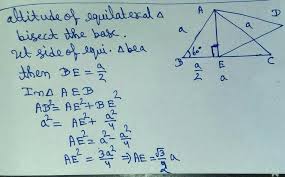 altitude of equilateral Δ
bisect the base.
let side of equi. Δ be a
then BE = a/2
In Δ AEB
AB² = AE² + BE²
a² = AE² + a²/4
AE² = a² - a²/4
AE² = 3a²/4 ⇒ AE = √3/2 a
A
D
a
a
60°
B
E
C
a/2
a